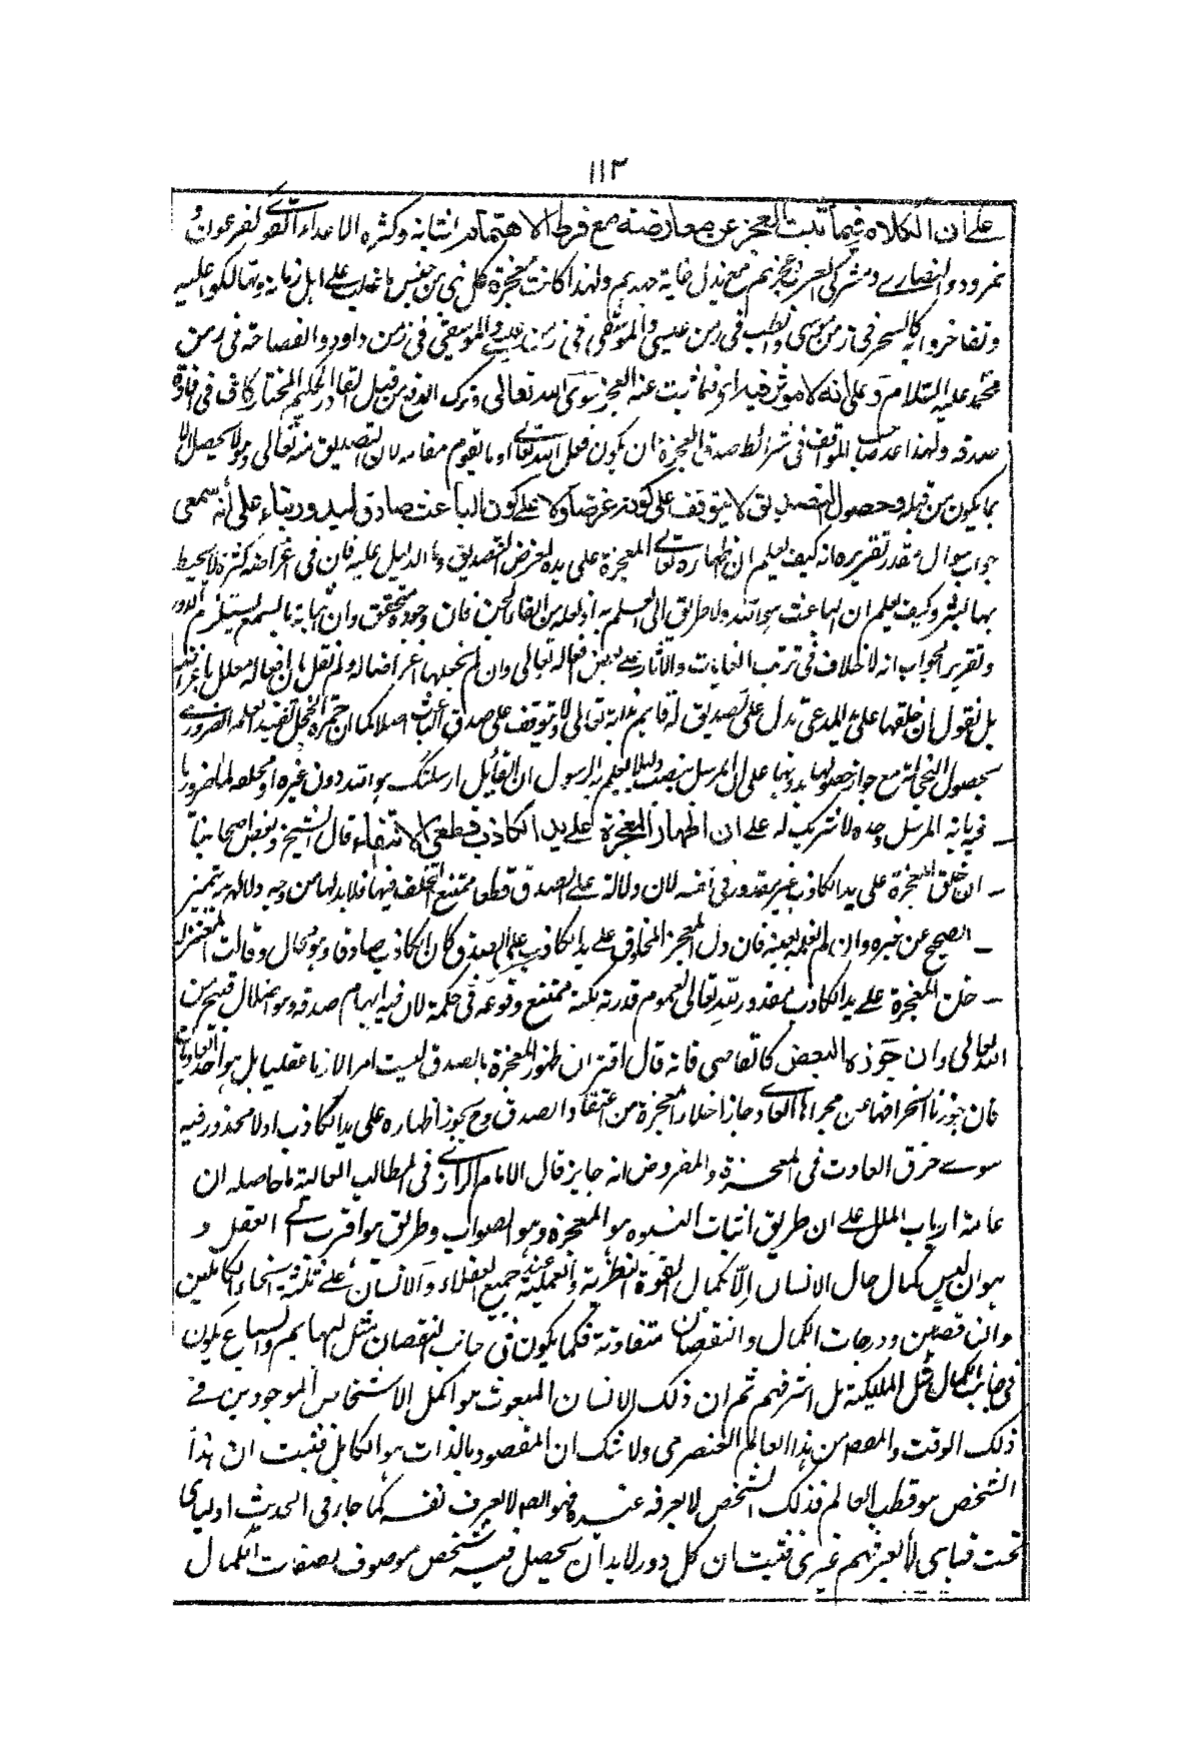 ١١٣
على ان الكلام فيما ثبت العجز عن معارضته مع فرط الاهتمام وكثرة الاعداء لفرعون
نمرود والنصارى ومشركى العرب مع بذل غاية جهدهم ولهذا كانت معجزة كل نبى من جنس ما غلب على اهل زمانه وتهالكوا عليه
وتفاخروا به كالسحر فى زمن موسى والطب فى زمن عيسى والموسيقى فى زمن داود والفصاحة فى زمن
محمد عليه السلام وعلى انه لا موثر فيه او فيما ثبت عنه العجز سوى الله تعالى وترك الدفع من قبل القادر الحكيم المختار كاف فى افادة
صدقه ولهذا عد صاحب المواقف فى شرائط صدق المعجزة ان يكون فعل الله تعالى او ما يقوم مقامه لان التصديق منه تعالى وهو لا يحصل الا
بما يكون من قبله وحصول التصديق لا يتوقف على كونه غرضا ولا على كون الباعث صادق بناء على انه سمعى
جواب سوال مقدر تقريره انه كيف يعلم ان اظهاره تعالى المعجزة على يده لغرض التصديق وما الدليل عليه فان فى اغراضه كثرة لا يحيط
بها البشر وكيف يعلم ان الباعث هو الله ولا طريق الى العلم به اذ لعله من القاء الجن فان وجوده متحقق وان اثباته بالسمع يستلزم الدور
وتقرير الجواب انه لا خلاف فى ترتب الغايات والآثار على بعض افعاله تعالى وان لم نجعلها اغراضا له ولم نقل بان افعاله معلل باغراض
بل نقول ان خلقها على يد المدعى يدل على تصديق له قايم بذاته تعالى ولا يتوقف على صدق الباعث اصلا كما ان حمرة الخجل تفيد العلم الضرورى
بحصول الخجالة مع جواز حصولها بدونها على ان المرسل ينصب دليلا يعلم به الرسول ان القائل ارسلتك هو الله دون غيره او يخلق علما ضروريا
فيه بانه المرسل وحده لا شريك له على ان اظهار المعجزة على يد الكاذب قطعى الانتفاء قال الشيخ وبعض اصحابنا
ان خلق المعجزة على يد الكاذب غير مقدور فى نفسه لان دلالة على الصدق قطعا ممتنع التخلف فيها فلا بد لها من وجه دلالة به يتميز
الصحيح عن غيره وان لم نعلمه بعينه فان دل المعجز المخلوق على يد الكاذب على الصدق كان الكاذب صادقا وهو محال وقالت المعتزلة
خلق المعجزة على يد الكاذب مقدور لله تعالى لعموم قدرته لكنه ممتنع وقوعه فى حكمة لان فيه ايهام صدقه وهو اضلال قبيح من
الله تعالى وان جوزه البعض كالقاضى فانه قال اقتران ظهور المعجزة بالصدق ليست امرا لازما عقليا بل هو احد العاديات
فان جوزنا انخراقها عن مجراها العادى جاز اخلاء المعجزة من اعتقاد الصدق وح يجوز اظهاره على يد الكاذب اذ لا محذور فيه
سوى خرق العادت فى المعجزة والمفروض انه جايز قال الامام الرازى فى المطالب العالية ما حاصله ان
عامة ارباب الملل على ان طريق اثبات النبوه هو المعجزة وهو الصواب وطريق هو اقرب الى العقل و
هو ان ليس كمال حال الانسان الا كمال القوة النظرية والعملية عند جميع العقلاء والانسان على ثلثة انحاء الكاملين
والناقصين ودرجات الكمال والنقصان متفاوتة فكما يكون فى جانب النقصان مثل البهايم والسباع يكون
فى جانب الكمال مثل المليكة بل اشرفهم ثم ان ذلك الانسان المبعوث هو اكمل الاشخاص الموجودين فى
ذلك الوقت والمعصم من هذا العالم العنصرى ولا شك ان المقصود بالذات هو الكامل فثبت ان هذا
الشخص هو قطب العالم فذلك الشخص لا يعرفه غيره لا يعرف نفسه كما جاز فى الحديث اوليائى
تحت قبابى لا يعرفهم غيرى فثبت ان كل دور لا بد ان يحصل فيه شخص موصوف بصفات الكمال